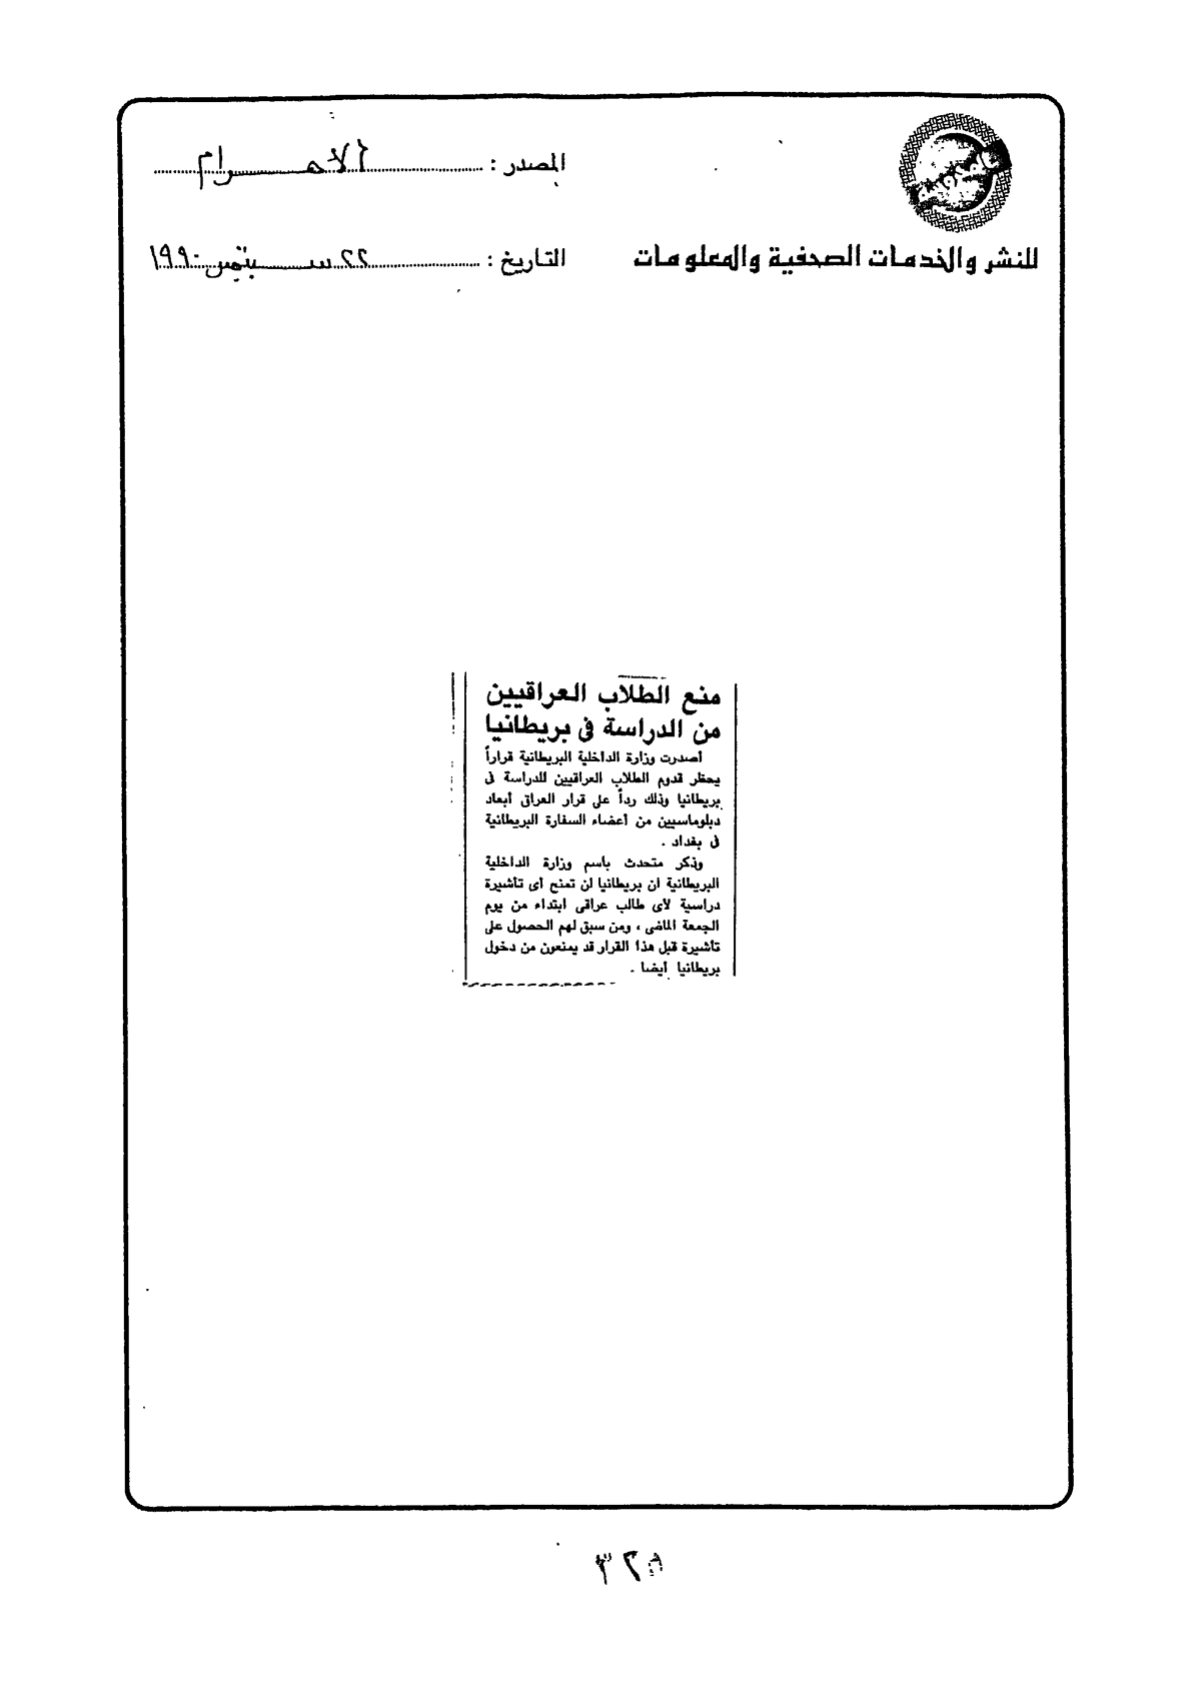 المصدر : الأهـــرام
للنشر والخدمات الصحفية والمعلومات
التاريخ : ٢٢ ســبتمبر ١٩٩٠
منع الطلاب العراقيين
من الدراسة فى بريطانيا
أصدرت وزارة الداخلية البريطانية قراراً
يحظر قدوم الطلاب العراقيين للدراسة فى
بريطانيا وذلك رداً على قرار العراق أبعاد
دبلوماسيين من أعضاء السفارة البريطانية
فى بغداد .
وذكر متحدث باسم وزارة الداخلية
البريطانية ان بريطانيا لن تمنح أى تأشيرة
دراسية لاى طالب عراقى ابتداء من يوم
الجمعة الماضى ، ومن سبق لهم الحصول على
تأشيرة قبل هذا القرار قد يمنعون من دخول
بريطانيا أيضا .
٣٢٥